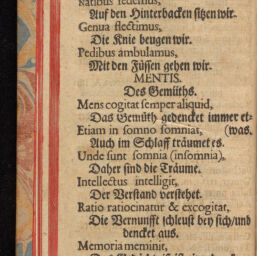 Natibus sedemus,
Auf den Hinterbacken sitzen wir.
Genua flectimus,
Die Knie beugen wir.
Pedibus ambulamus,
Mit den Füssen gehen wir.
MENTIS.
Des Gemüths.
Mens cogitat semper aliquid,
Das Gemüth gedencket immer et-
Etiam in somno somnias, (was.
Auch im Schlaff träumet es.
Unde sunt somnia (insomnia),
Daher sind die Träume.
Intellectus intelligit,
Der Verstand verstehet.
Ratio ratiocinatur & excogitat,
Die Vernunfft schleust bey sich/und
dencket aus.
Memoria meminit,